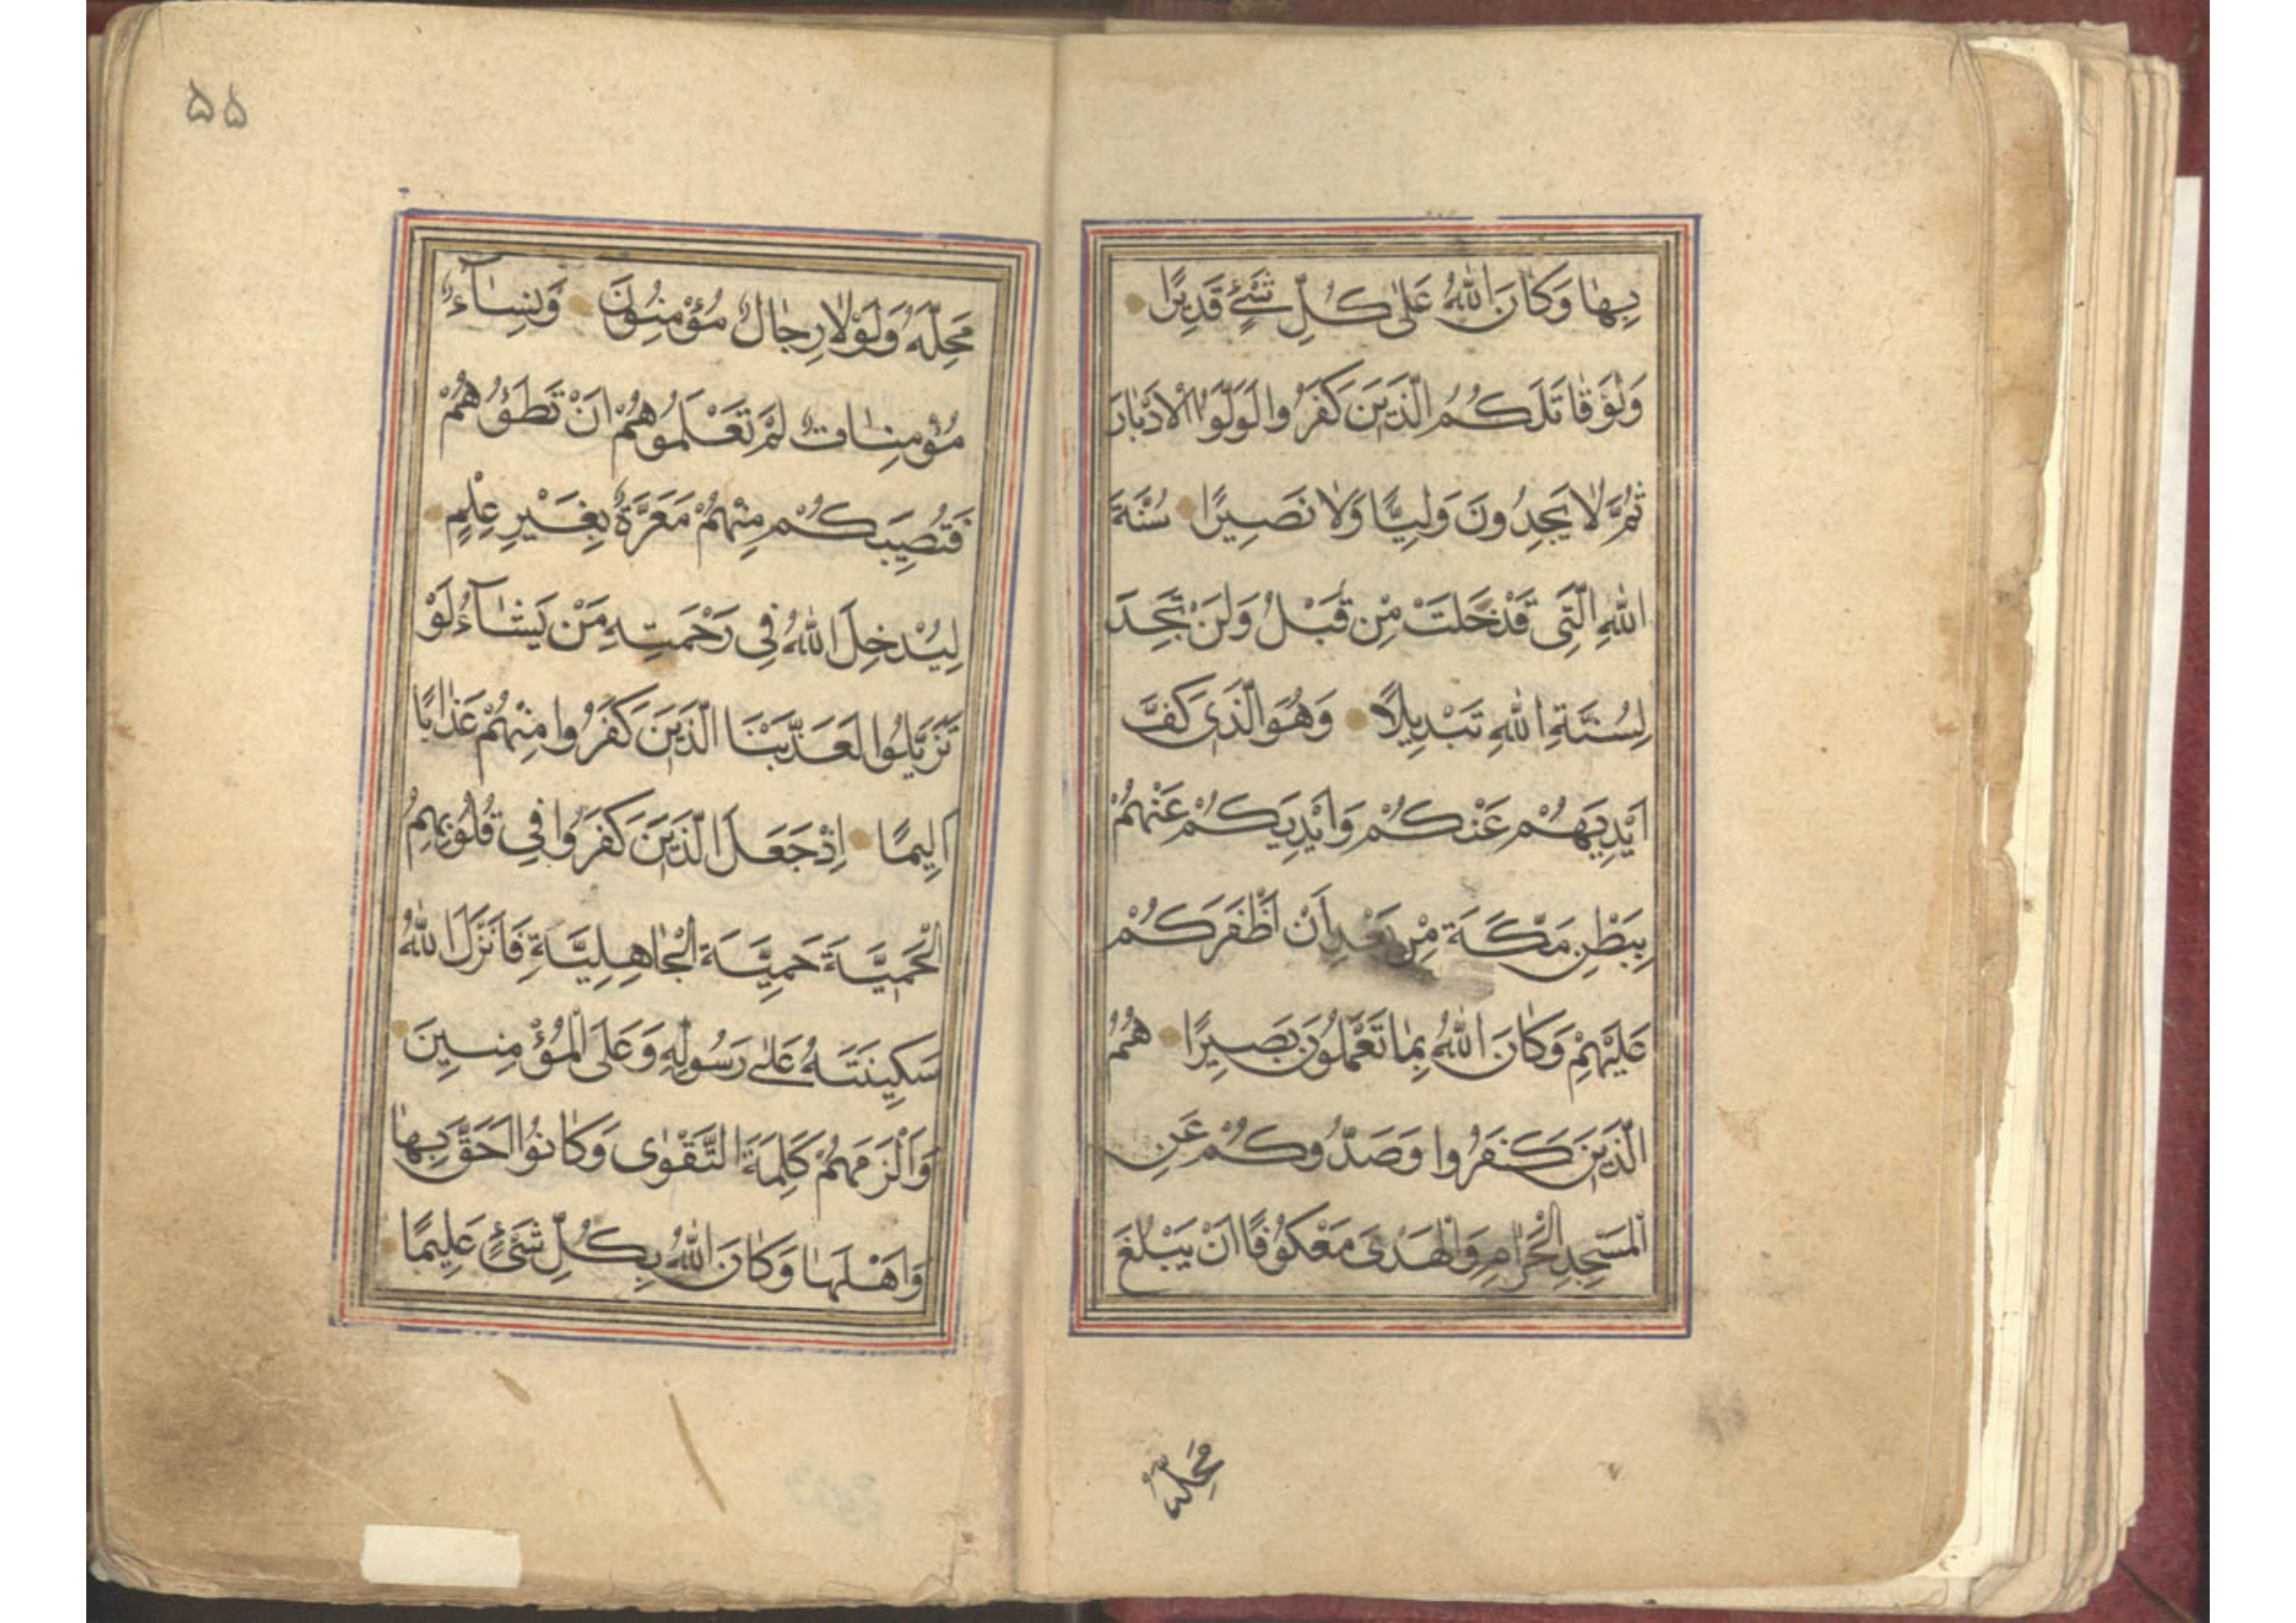 بِهٰا وَكٰانَ اللّٰهُ عَلىٰ كُلِّ شَيْءٍ قَدِيرًا
وَلَوْ قٰاتَلَكُمُ الَّذِينَ كَفَرُوا لَوَلَّوُا الْاَدْبٰارَ
ثُمَّ لٰا يَجِدُونَ وَلِيًّا وَلٰا نَصِيرًا سُنَّةَ
اللّٰهِ الَّتِي قَدْ خَلَتْ مِنْ قَبْلُ وَلَنْ تَجِدَ
لِسُنَّةِ اللّٰهِ تَبْدِيلًا وَهُوَ الَّذِي كَفَّ
اَيْدِيَهُمْ عَنْكُمْ وَاَيْدِيَكُمْ عَنْهُمْ
بِبَطْنِ مَكَّةَ مِنْ بَعْدِ اَنْ اَظْفَرَكُمْ
عَلَيْهِمْ وَكٰانَ اللّٰهُ بِمٰا تَعْمَلُونَ بَصِيرًا هُمُ
الَّذِينَ كَفَرُوا وَصَدُّوكُمْ عَنِ
الْمَسْجِدِ الْحَرٰامِ وَالْهَدْىَ مَعْكُوفًا اَنْ يَبْلُغَ
مَحِلَّهُ
۵۵
مَحِلَّهُ وَلَوْلٰا رِجٰالٌ مُؤْمِنُونَ وَنِسٰآءٌ
مُؤْمِنٰاتٌ لَمْ تَعْلَمُوهُمْ اَنْ تَطَؤُهُمْ
فَتُصِيبَكُمْ مِنْهُمْ مَعَرَّةٌ بِغَيْرِ عِلْمٍ
لِيُدْخِلَ اللّٰهُ فِي رَحْمَتِهِ مَنْ يَشٰآءُ لَوْ
تَزَيَّلُوا لَعَذَّبْنَا الَّذِينَ كَفَرُوا مِنْهُمْ عَذٰابًا
اَلِيمًا اِذْ جَعَلَ الَّذِينَ كَفَرُوا فِي قُلُوبِهِمُ
الْحَمِيَّةَ حَمِيَّةَ الْجٰاهِلِيَّةِ فَاَنْزَلَ اللّٰهُ
سَكِينَتَهُ عَلىٰ رَسُولِهِ وَعَلَى الْمُؤْمِنِينَ
وَاَلْزَمَهُمْ كَلِمَةَ التَّقْوٰى وَكٰانُوا اَحَقَّ بِهٰا
وَاَهْلَهٰا وَكٰانَ اللّٰهُ بِكُلِّ شَيْءٍ عَلِيمًا